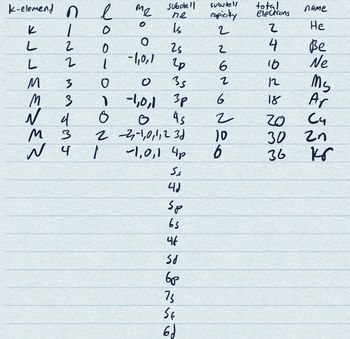 K-element n l me subshell ne subshell capicity total electrons name
K 1 0 0 1s 2 2 He
L 2 0 0 2s 2 4 Be
L 2 1 -1,0,1 2p 6 10 Ne
M 3 0 0 3s 2 12 Mg
M 3 1 -1,0,1 3p 6 18 Ar
N 4 0 0 4s 2 20 Ca
M 3 2 -2,-1,0,1,2 3d 10 30 Zn
N 4 1 -1,0,1 4p 6 36 Kr
5s
4d
5p
6s
4f
5d
6p
7s
5f
6d